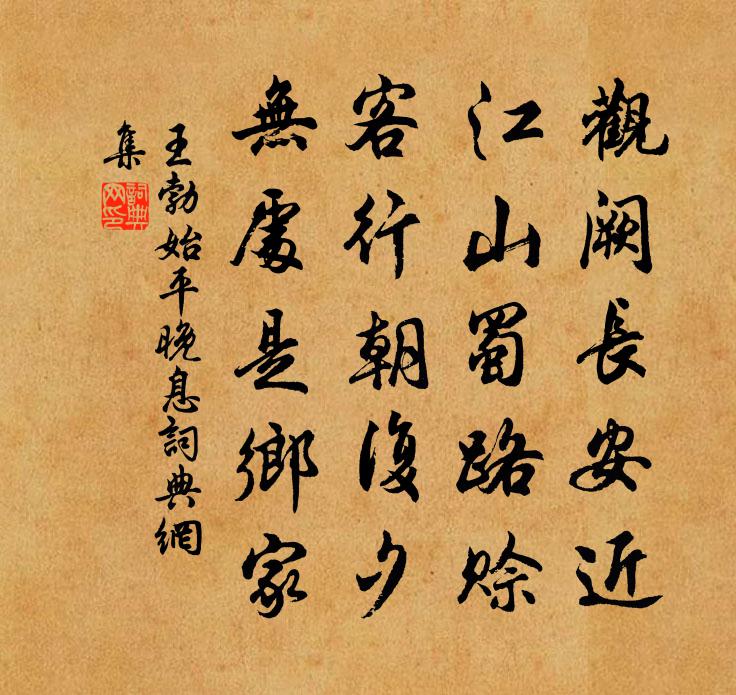 觀闕長安近
江山蜀路賒
客行朝復夕
無處是鄉家
王勃始平晚息詞典網
集
詞典
网印